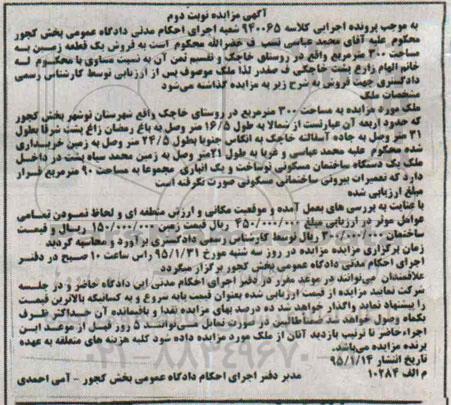 آگهی مزایده نوبت دوم
به موجب پرونده اجرایی کلاسه ۹۴۰۰۶۵ شعبه اجرای احکام مدنی دادگاه عمومی بخش کجور
محکوم علیه آقای محمد عباسی نسب ف خضراله محکوم است به فروش یک قطعه زمین به
مساحت ۳۰۰ مترمربع واقع در روستای خاچک و تقسیم ثمن آن به نسبت مساوی با محکوم له
خانم الهام زارع پشت خاچکی ف صفدر لذا ملک موصوف پس از ارزیابی توسط کارشناس رسمی
دادگستری جهت فروش به شرح زیر به مزایده گذاشته می‌شود
مشخصات ملک
ملک مورد مزایده به مساحت ۳۰۰ مترمربع در روستای خاچک واقع شهرستان نوشهر بخش کجور
که حدود اربعه آن عبارتست از شمالا به طول ۱۶/۵ متر وصل به باغ رمضان زاغ پشت شرقا بطول
۳۱ متر وصل به جاده آسفالته خاچک به انگاس جنوبا بطول ۲۴/۵ متر وصل به زمین خریداری
شده محکوم علیه محمد عباسی و غربا به طول ۲۱متر وصل به زمین محمد سیاه پشت در داخل
ملک یک دستگاه ساختمان مسکونی نوساخت و یک انباری مجموعا به مساحت ۹۰ مترمربع قرار
دارد که تعمیرات بیرونی ساختمانی مسکونی صورت نگرفته است
مبلغ ارزیابی شده
با عنایت به بررسی های بعمل آمده و موقعیت مکانی و ارزش منطقه ای و لحاظ نمودن تمامی
عوامل موثر در ارزیابی مبلغ ۴۵۰/۰۰۰/۰۰۰ ریال قیمت زمین ۱۵۰/۰۰۰/۰۰۰ ریال و قیمت
ساختمان ۳۰۰/۰۰۰/۰۰۰ ریال توسط کارشناس رسمی دادگستری برآورد و محاسبه گردید
زمان برگزاری مزایده مزایده در روز سه شنبه مورخ ۹۵/۱/۳۱ راس ساعت ۱۰ صبح در دفتر
اجرای احکام مدنی دادگاه عمومی بخش کجور برگزار میگردد
علاقمندان می‌توانند در موعد مقرر در دفتر اجرای احکام مدنی این دادگاه حاضر و در جلسه
شرکت نمایند مزایده از قیمت ارزیابی شده بعنوان قیمت پایه شروع و به کسانیکه بالاترین قیمت
را پیشنهاد نماید واگذار خواهد شد ده درصد بهای مزایده نقدا و باقیمانده آن حداکثر ظرف
یکماه وصول خواهد شد متقاضیان در صورت تمایل می‌توانند ۵ روز قبل از موعد این
اجراء حاضر تا ترتیب بازدید آنان از ملک مورد مزایده داده شود کلیه هزینه های متعلقه به عهده
برنده مزایده می‌باشد.
تاریخ انتشار ۹۵/۱/۱۴
م الف ۱۰۲۸۴
مدیر دفتر اجرای احکام دادگاه عمومی بخش کجور - آمی احمدی
۰۲۱-۸۸۳۴۹۶۷۰